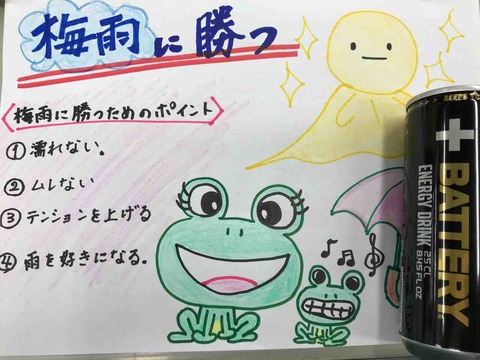 梅雨に勝つ
梅雨に勝つためのポイント
① 濡れない。
② ムレない
③ テンションを上げる
④ 雨を好きになる。
BATTERY
ENERGY DRINK
25 CL
8.45 FL OZ